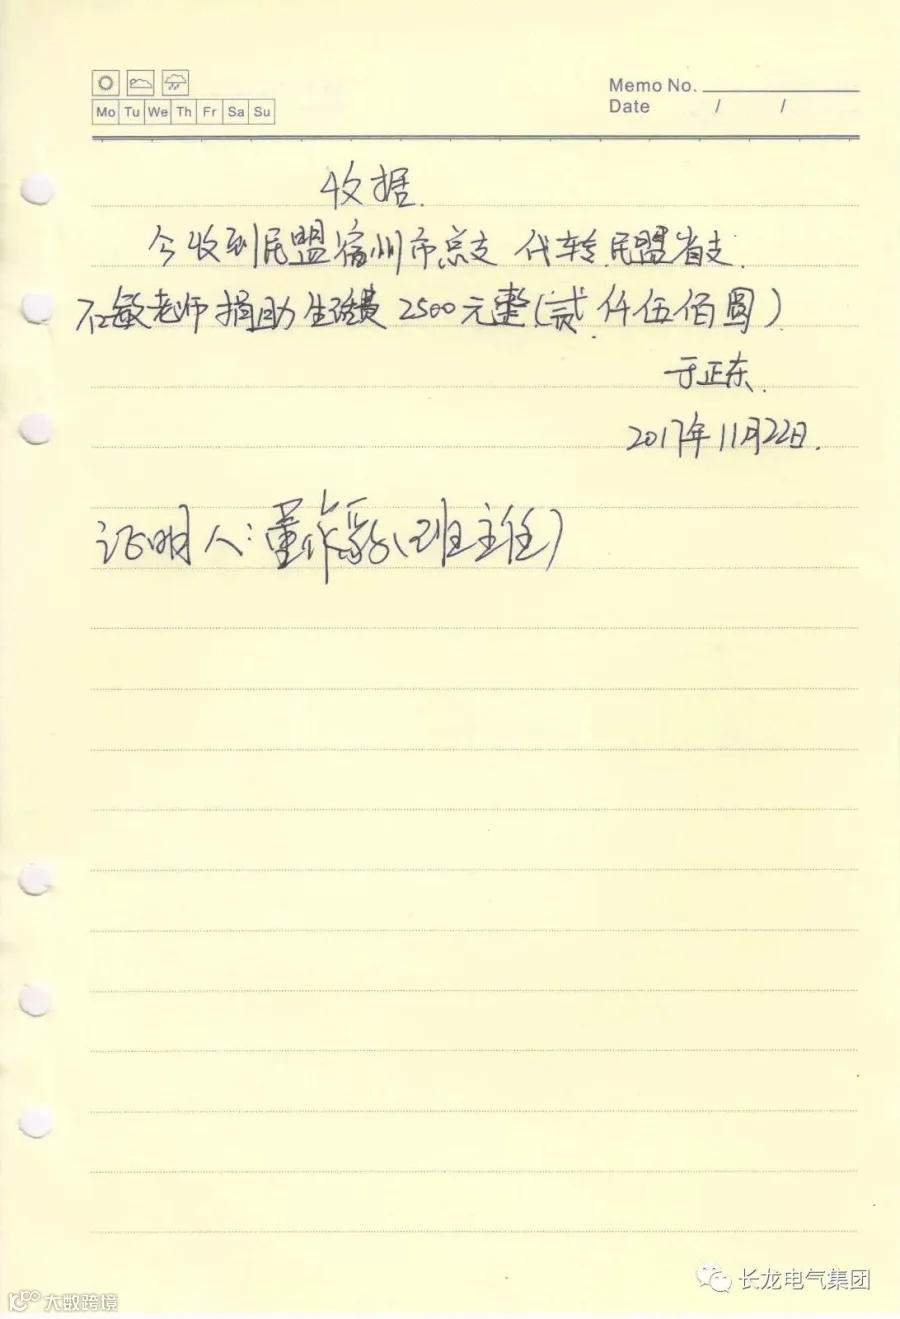 Memo No.
Mo Tu We Th Fr Sa Su
Date / /
收据.
今收到民盟宿州市总支 代转民盟省支
石敏老师捐助生活费2500元整(贰仟伍佰圆)
于正东.
2017年11月22日.
证明人:董作(班主任)
长龙电气集团
大数跨境